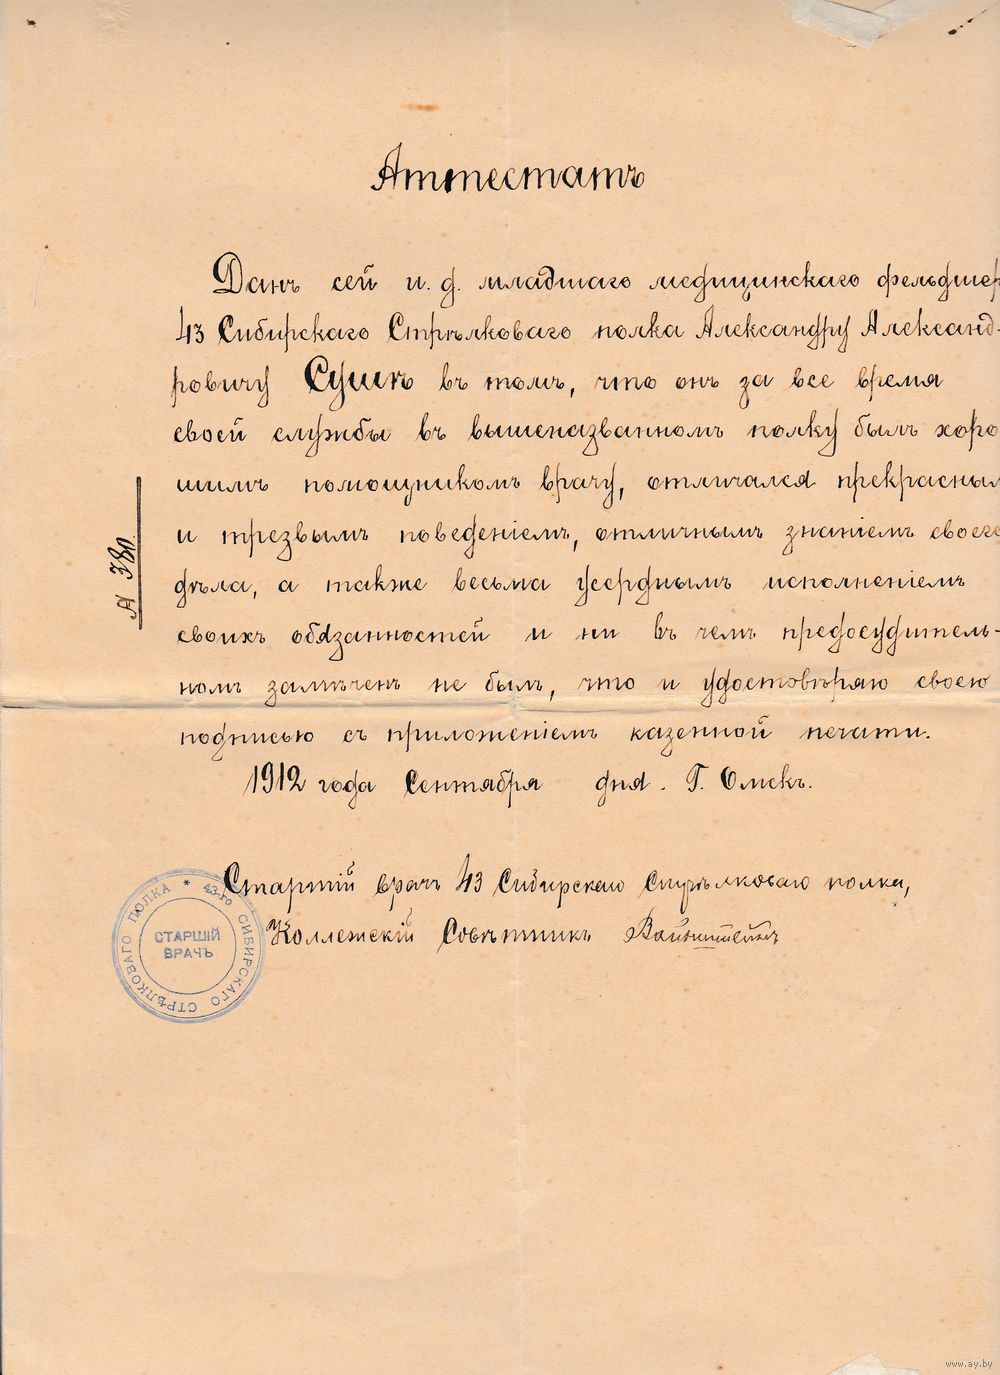 Аттестатъ
Данъ сей и. д. младшаго медицинскаго фельдшер
43 Сибирскаго Стрѣлковаго полка Александру Александ-
ровичу Сушъ въ томъ, что онъ за все время
своей службы въ вышеназванномъ полку былъ хоро
шимъ помощникомъ врачу, отличался прекрасным
и трезвымъ поведеніемъ, отличнымъ знаніемъ своего
дѣла, а также весьма усерднымъ исполненіемъ
своихъ обязанностей и ни въ чемъ предосудитель-
номъ замѣченъ не былъ, что и удостовѣряю своею
подписью съ приложеніемъ казенной печати.
1912 года Сентября дня. Г. Омскъ.
Старшій врачъ 43 Сибирскаго Стрѣлковаго полка,
Коллежскій Совѣтникъ Вайнштейнъ
43-ГО СИБИРСКАГО СТРѢЛКОВАГО ПОЛКА *
СТАРШІЙ
ВРАЧЪ
380
www.ay.by